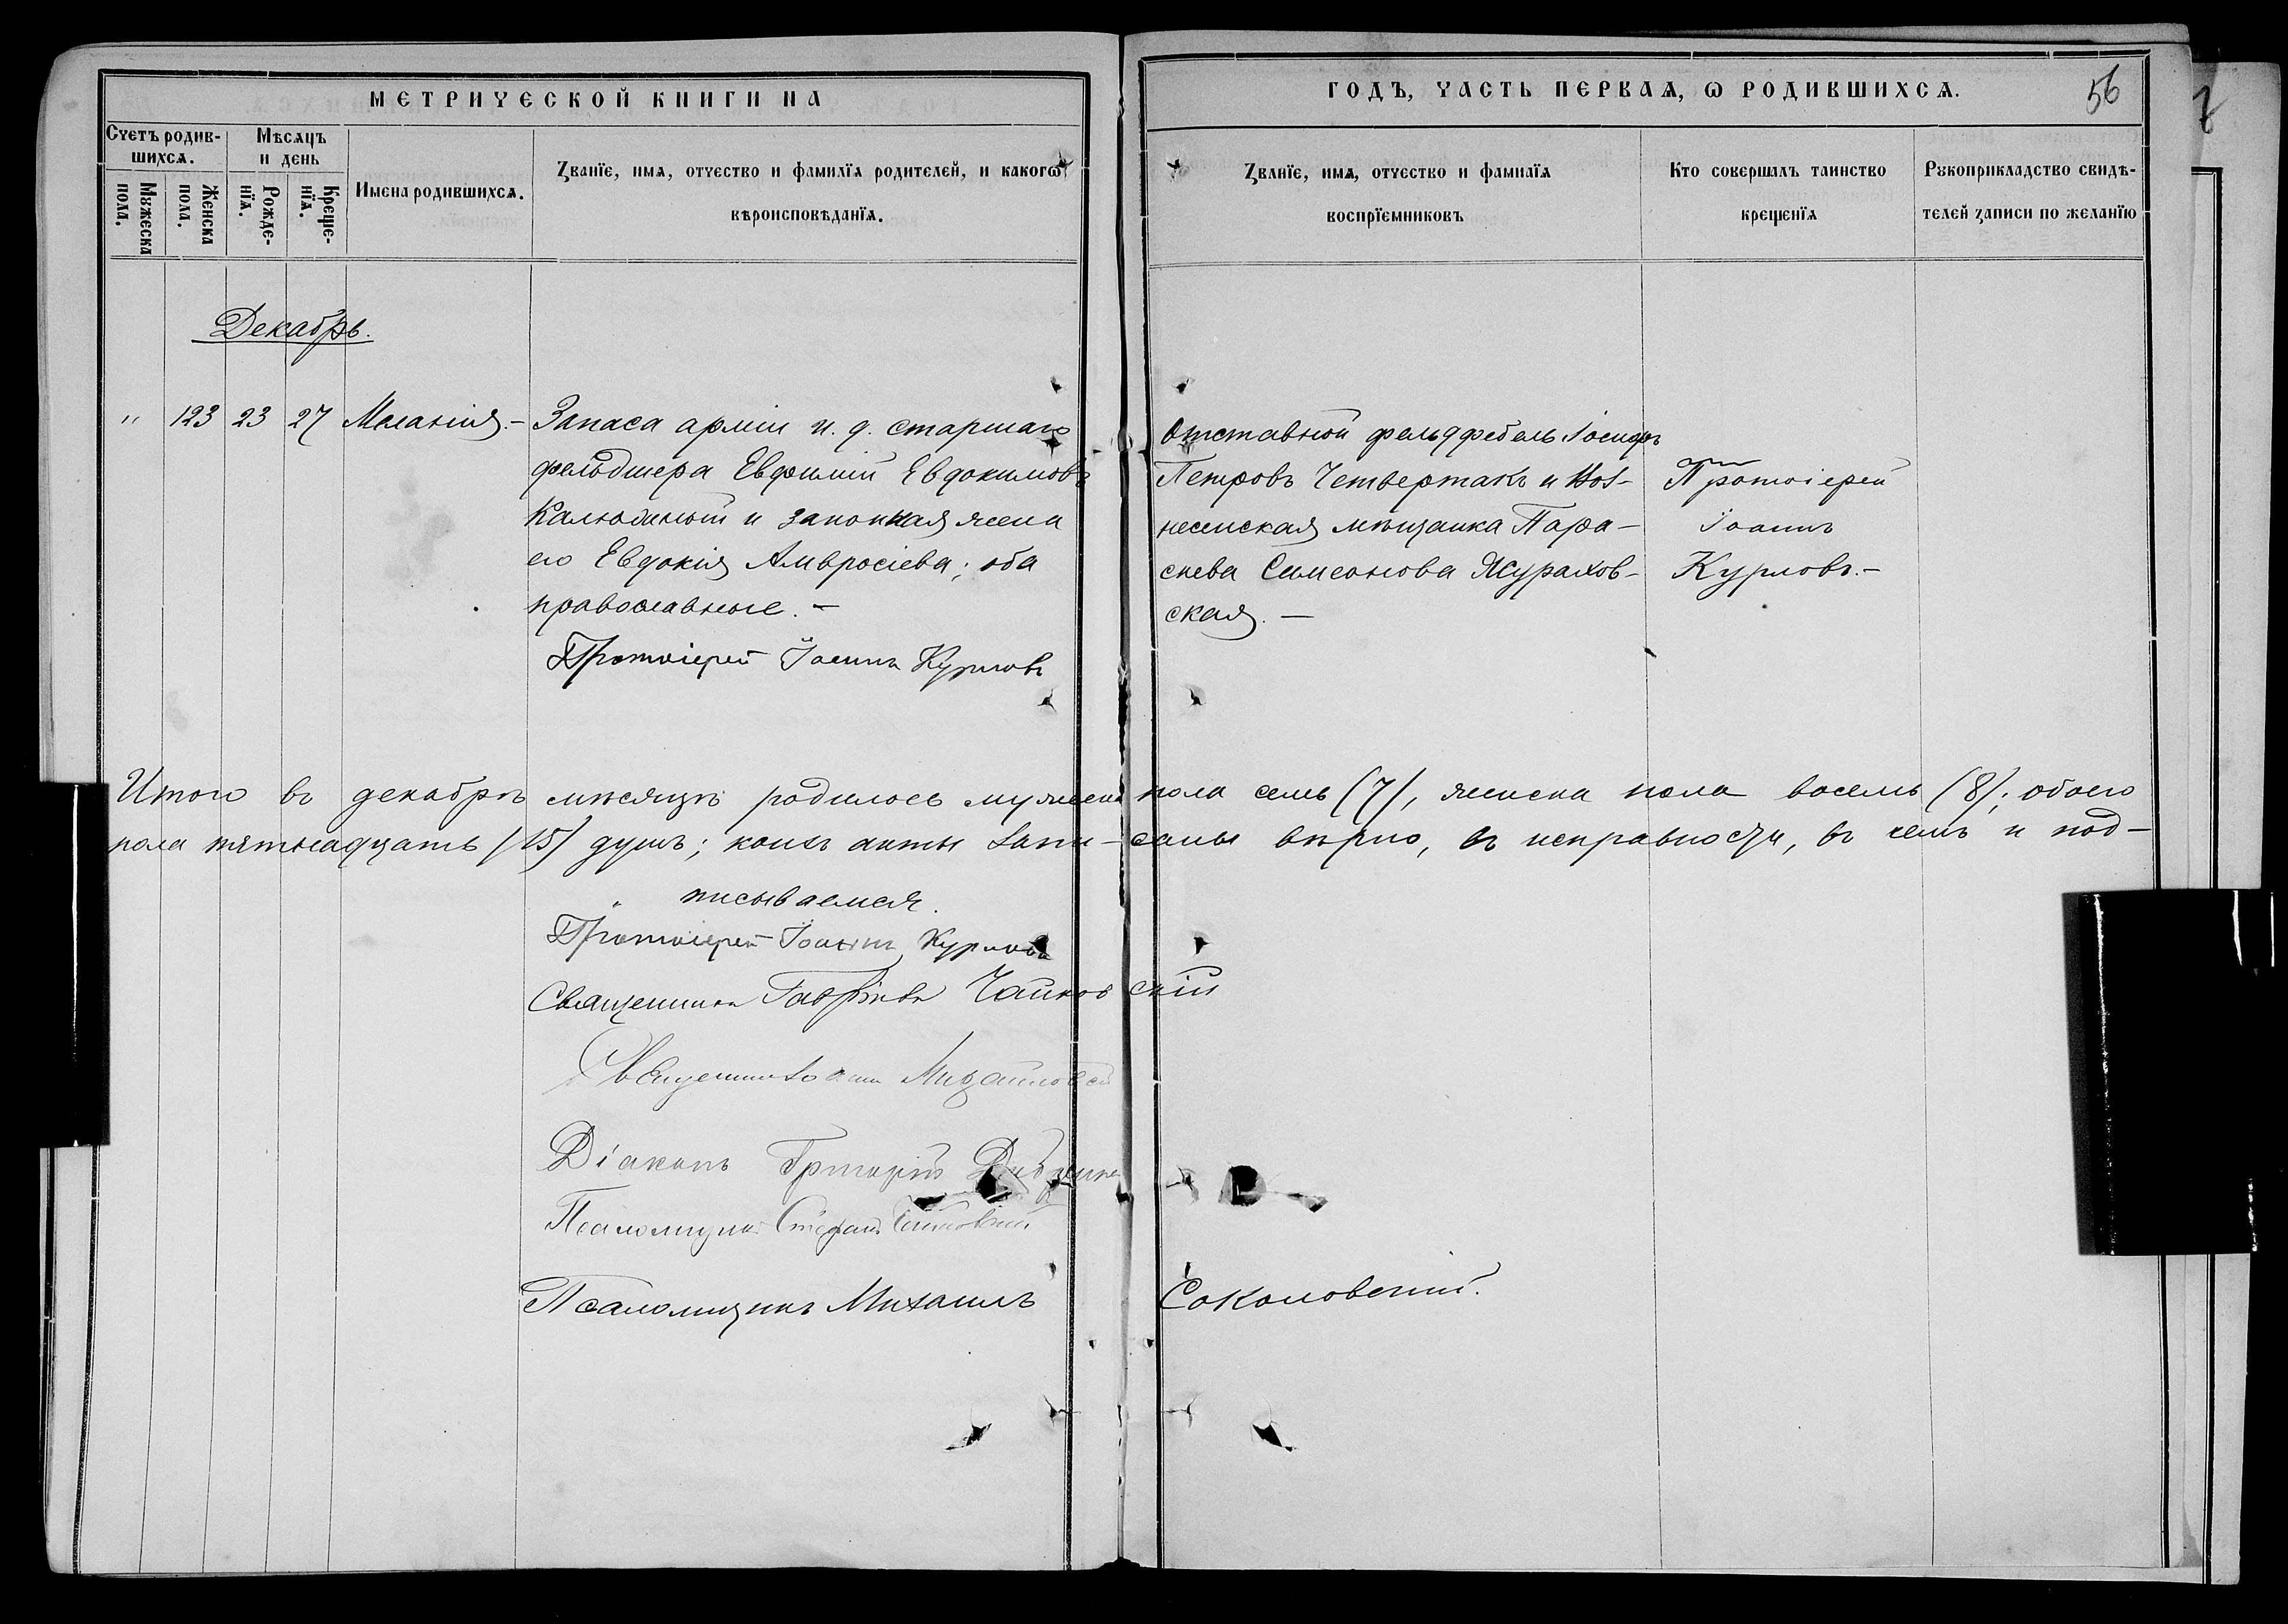 МЕТРИЧЕСКОЙ КНИГИ НА
ГОДЪ, ЧАСТЬ ПЕРВАѦ, Ѡ РОДИВШИХСѦ.
56
Счетъ родив-
шихсѧ.
Мꙋжеска пола.
Женска пола.
Мѣсѧцъ
и день
Рожде-
нїѧ.
Креще-
нїѧ.
Имена родившихсѧ.
Званїе, имѧ, отчество и фамилїѧ родителей, и какогѡ
вѣроисповѣданїѧ.
Званїе, имѧ, отчество и фамилїѧ
воспрїемниковъ
Кто совершалъ таинство
крещенїѧ
Рꙋкоприкладство свидѣ-
телей записи по желанїю
Декабрь.
" 123 23 27 Меланія. -
Запаса арміи и. д. старшаго
фельдшера Евфимій Евдокимовъ
Калюжный и законная жена
его Евдокія Амвросіева; оба
православные. -
Протоіерей Іоаннъ Курловъ
Отставной фельдфебель Іосифъ
Петровъ Четвертакъ и Воз-
несенская мѣщанка Пара-
скева Симеонова Жураков-
ская. -
Протоіерей
Іоаннъ
Курловъ. -
Итого въ декабрѣ мѣсяцѣ родилось мужеска пола семь (7), женска пола восемь (8); обоего
пола пятнадцать (15) душъ; коихъ акты запи-саны вѣрно, въ исправности, въ чемъ и под-
писываемся.
Протоіерей Іоаннъ Курловъ
Священникъ Гавріилъ Чайковскій
Священникъ Іоаннъ Михайловскій
Діаконъ Григорій
Псаломщикъ Стефанъ
Псаломщикъ Михаилъ Соколовскій.